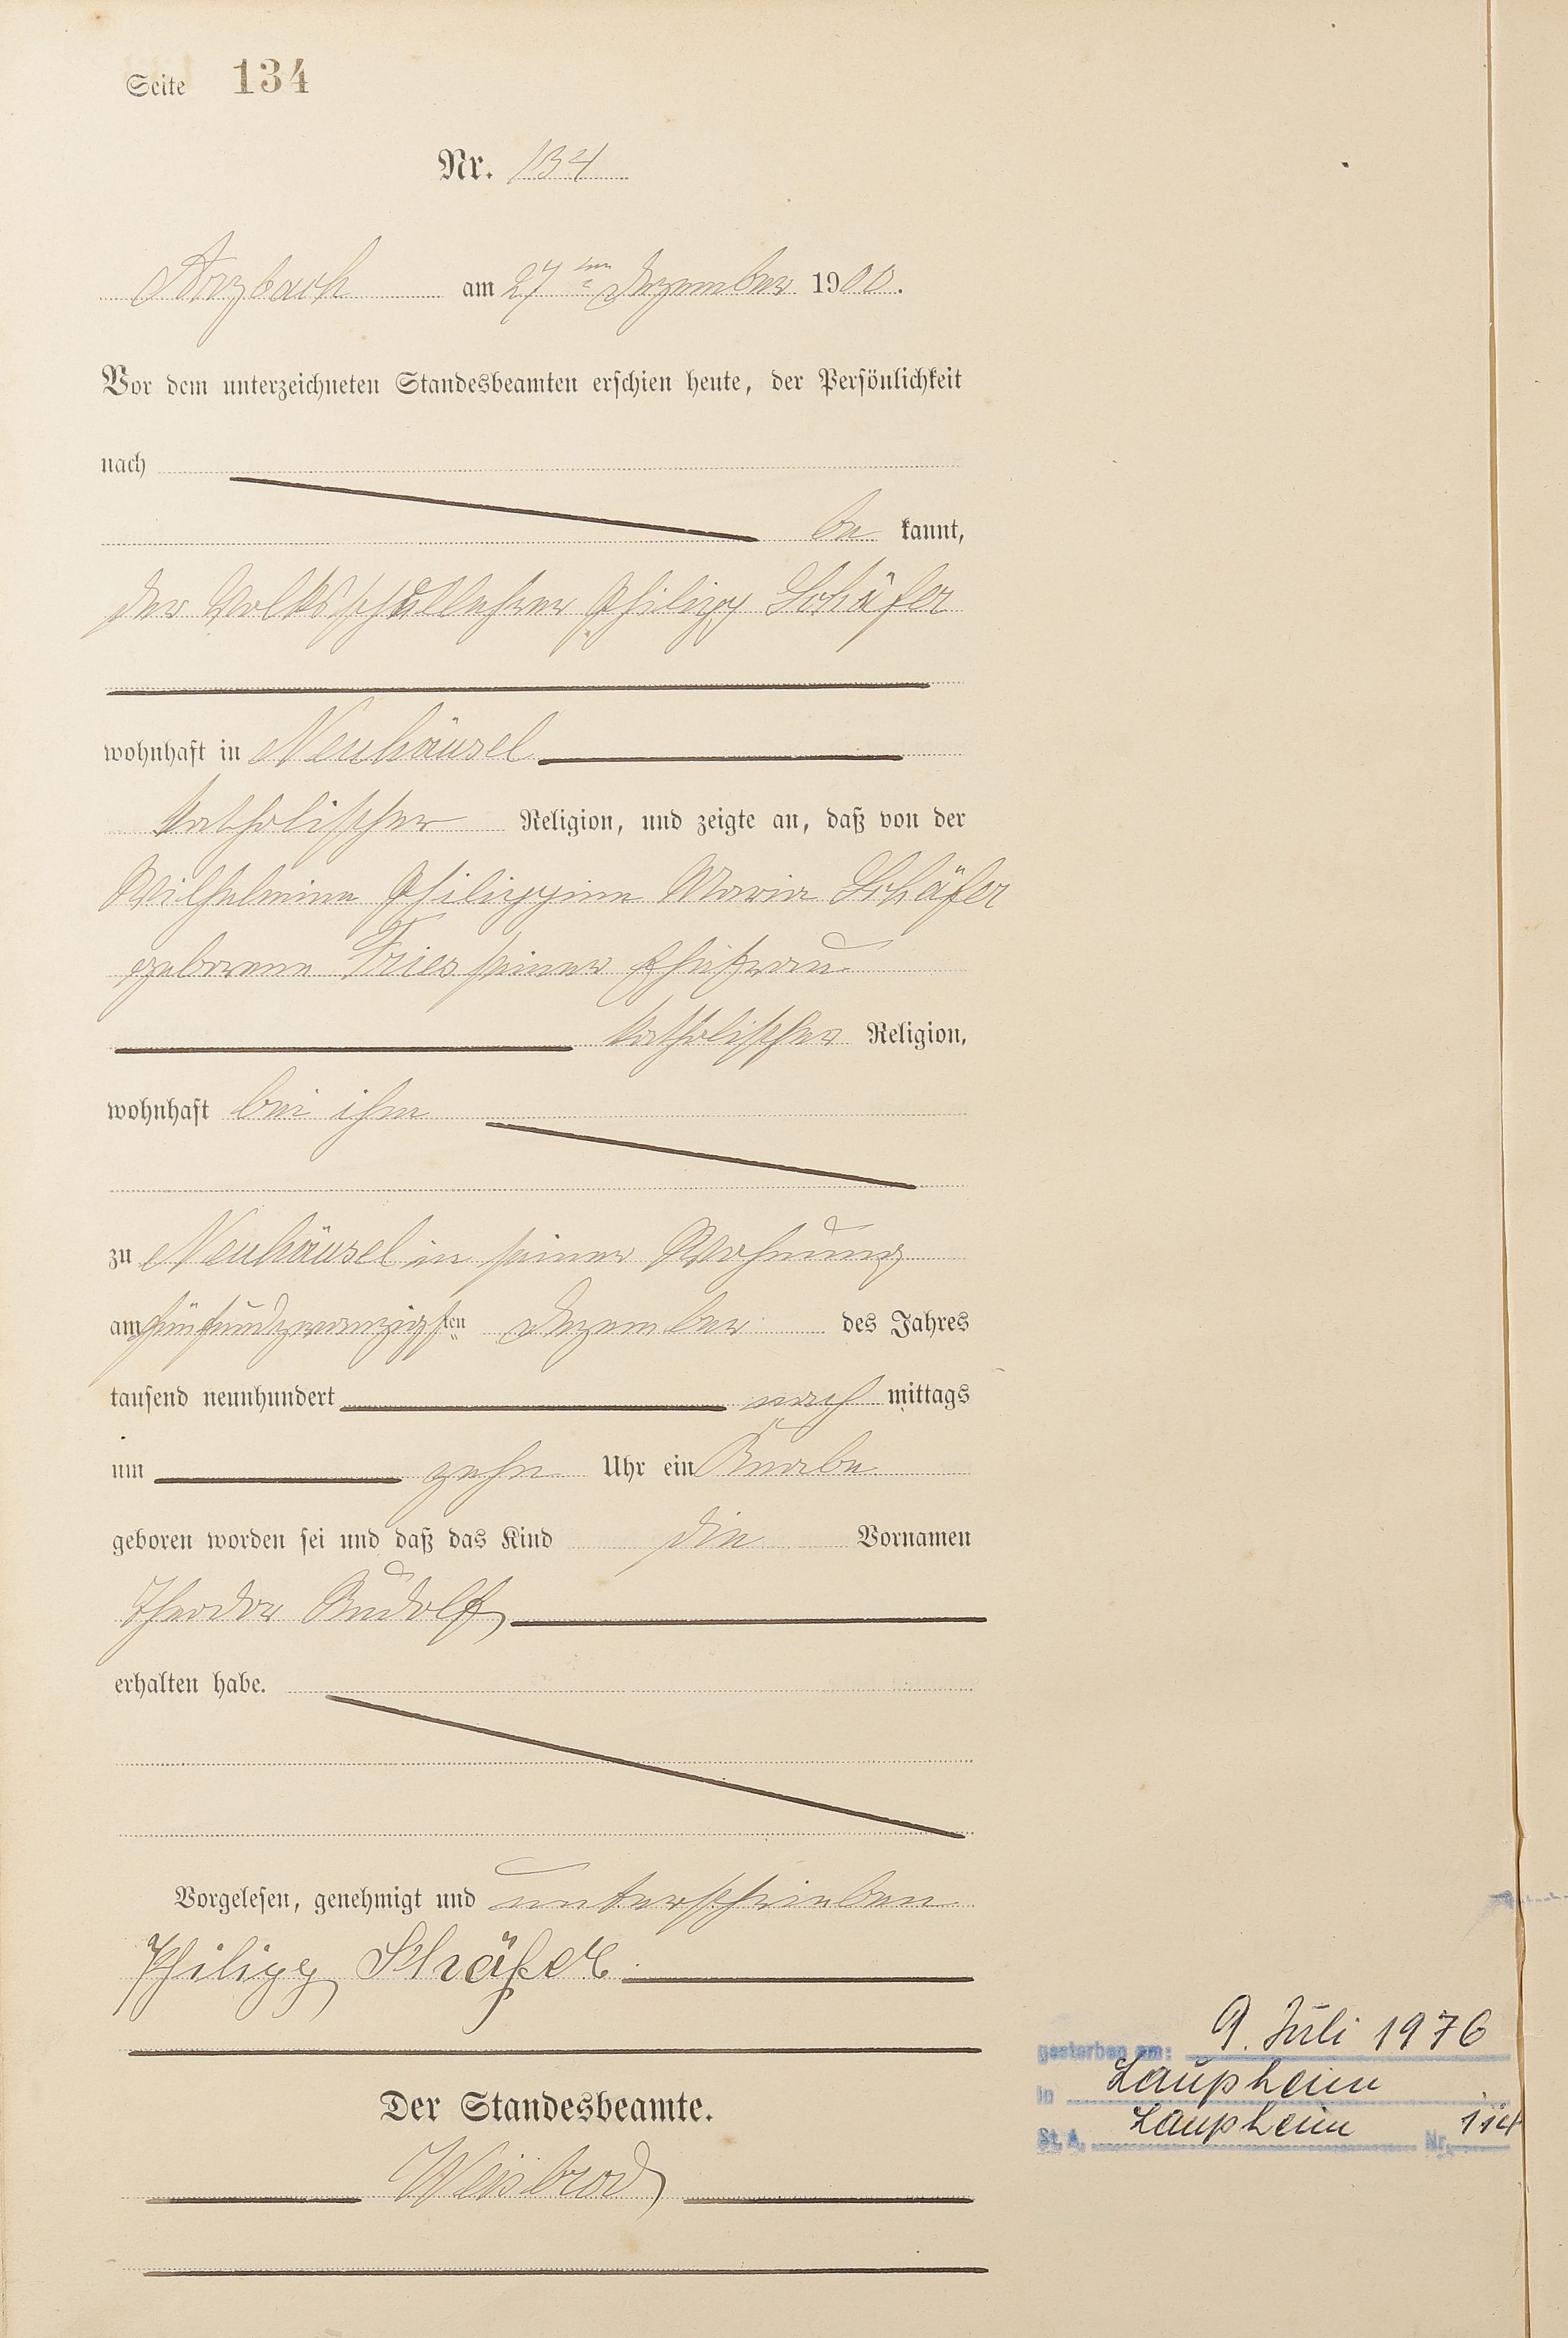 Seite 134
Nr. 134
Arzbach am 27ten Dezember 1900.
Vor dem unterzeichneten Standesbeamten erschien heute, der Persönlichkeit
nach
be kannt,
der Volksschullehrer Philipp Schäfer
wohnhaft in Neuhäusel
katholischer Religion, und zeigte an, daß von der
Wilhelmine Philippine Maria Schäfer
geborene Fries seiner Ehefrau
katholischer Religion,
wohnhaft bei ihm
zu Neuhäusel in seiner Wohnung
am fünfundzwanzigsten Dezember des Jahres
tausend neunhundert nach mittags
um zehn Uhr ein Knabe
geboren worden sei und daß das Kind die Vornamen
Theodor Rudolf
erhalten habe.
Vorgelesen, genehmigt und unterschrieben
Philipp Schäfer
Der Standesbeamte.
Weisbrod
gestorben am: 9. Juli 1976
in Laupheim
St. A. Laupheim Nr. 114